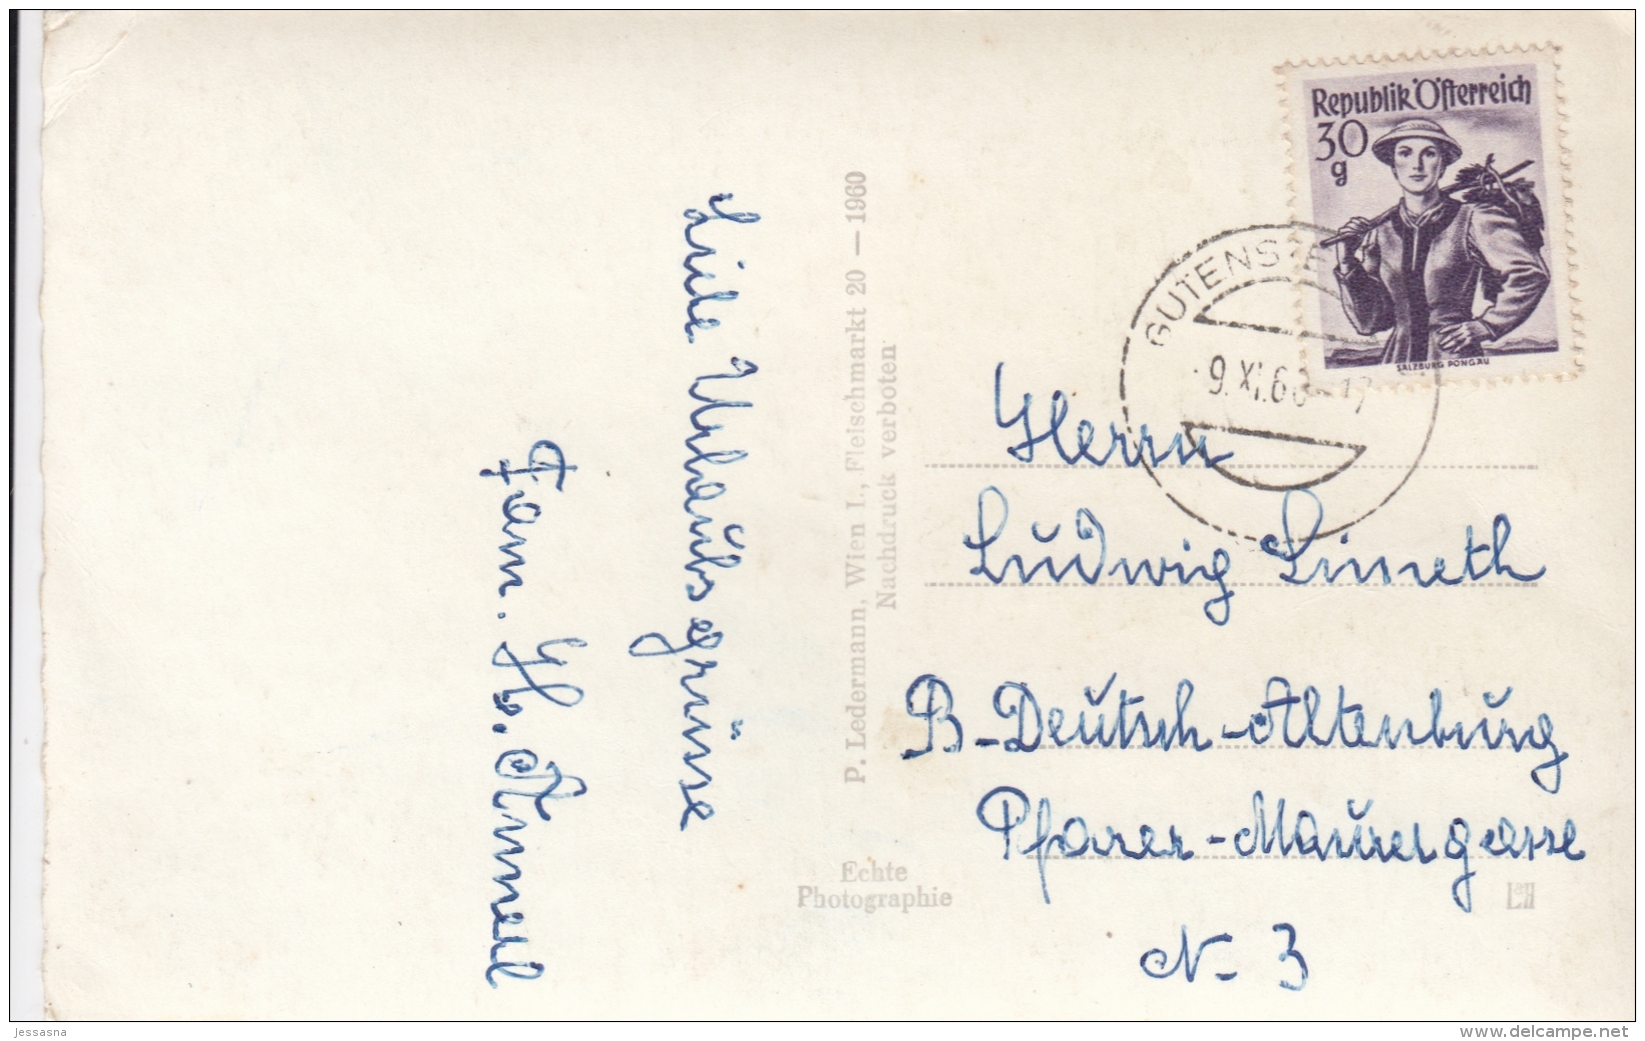 Liebe Urlaubsgrüsse
Fam. H.
P. Ledermann, Wien I., Fleischmarkt 20 — 1960
Nachdruck verboten
Echte
Photographie
Republik Österreich
30
g
SALZBURG PONGAU
GUTENSTE
9.XI.60-17
Herrn
Ludwig Limeth
B-Deutsch-Altenburg
Pfarrer-Maurergasse
N- 3
jessasna
www.delcampe.net